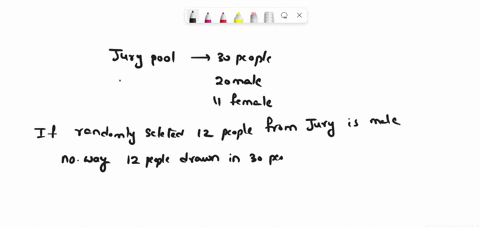 Jury pool → 30 people
20 male
11 female
If randomly seleted 12 people from Jury is male
no. way 12 people drawn in 30 peo